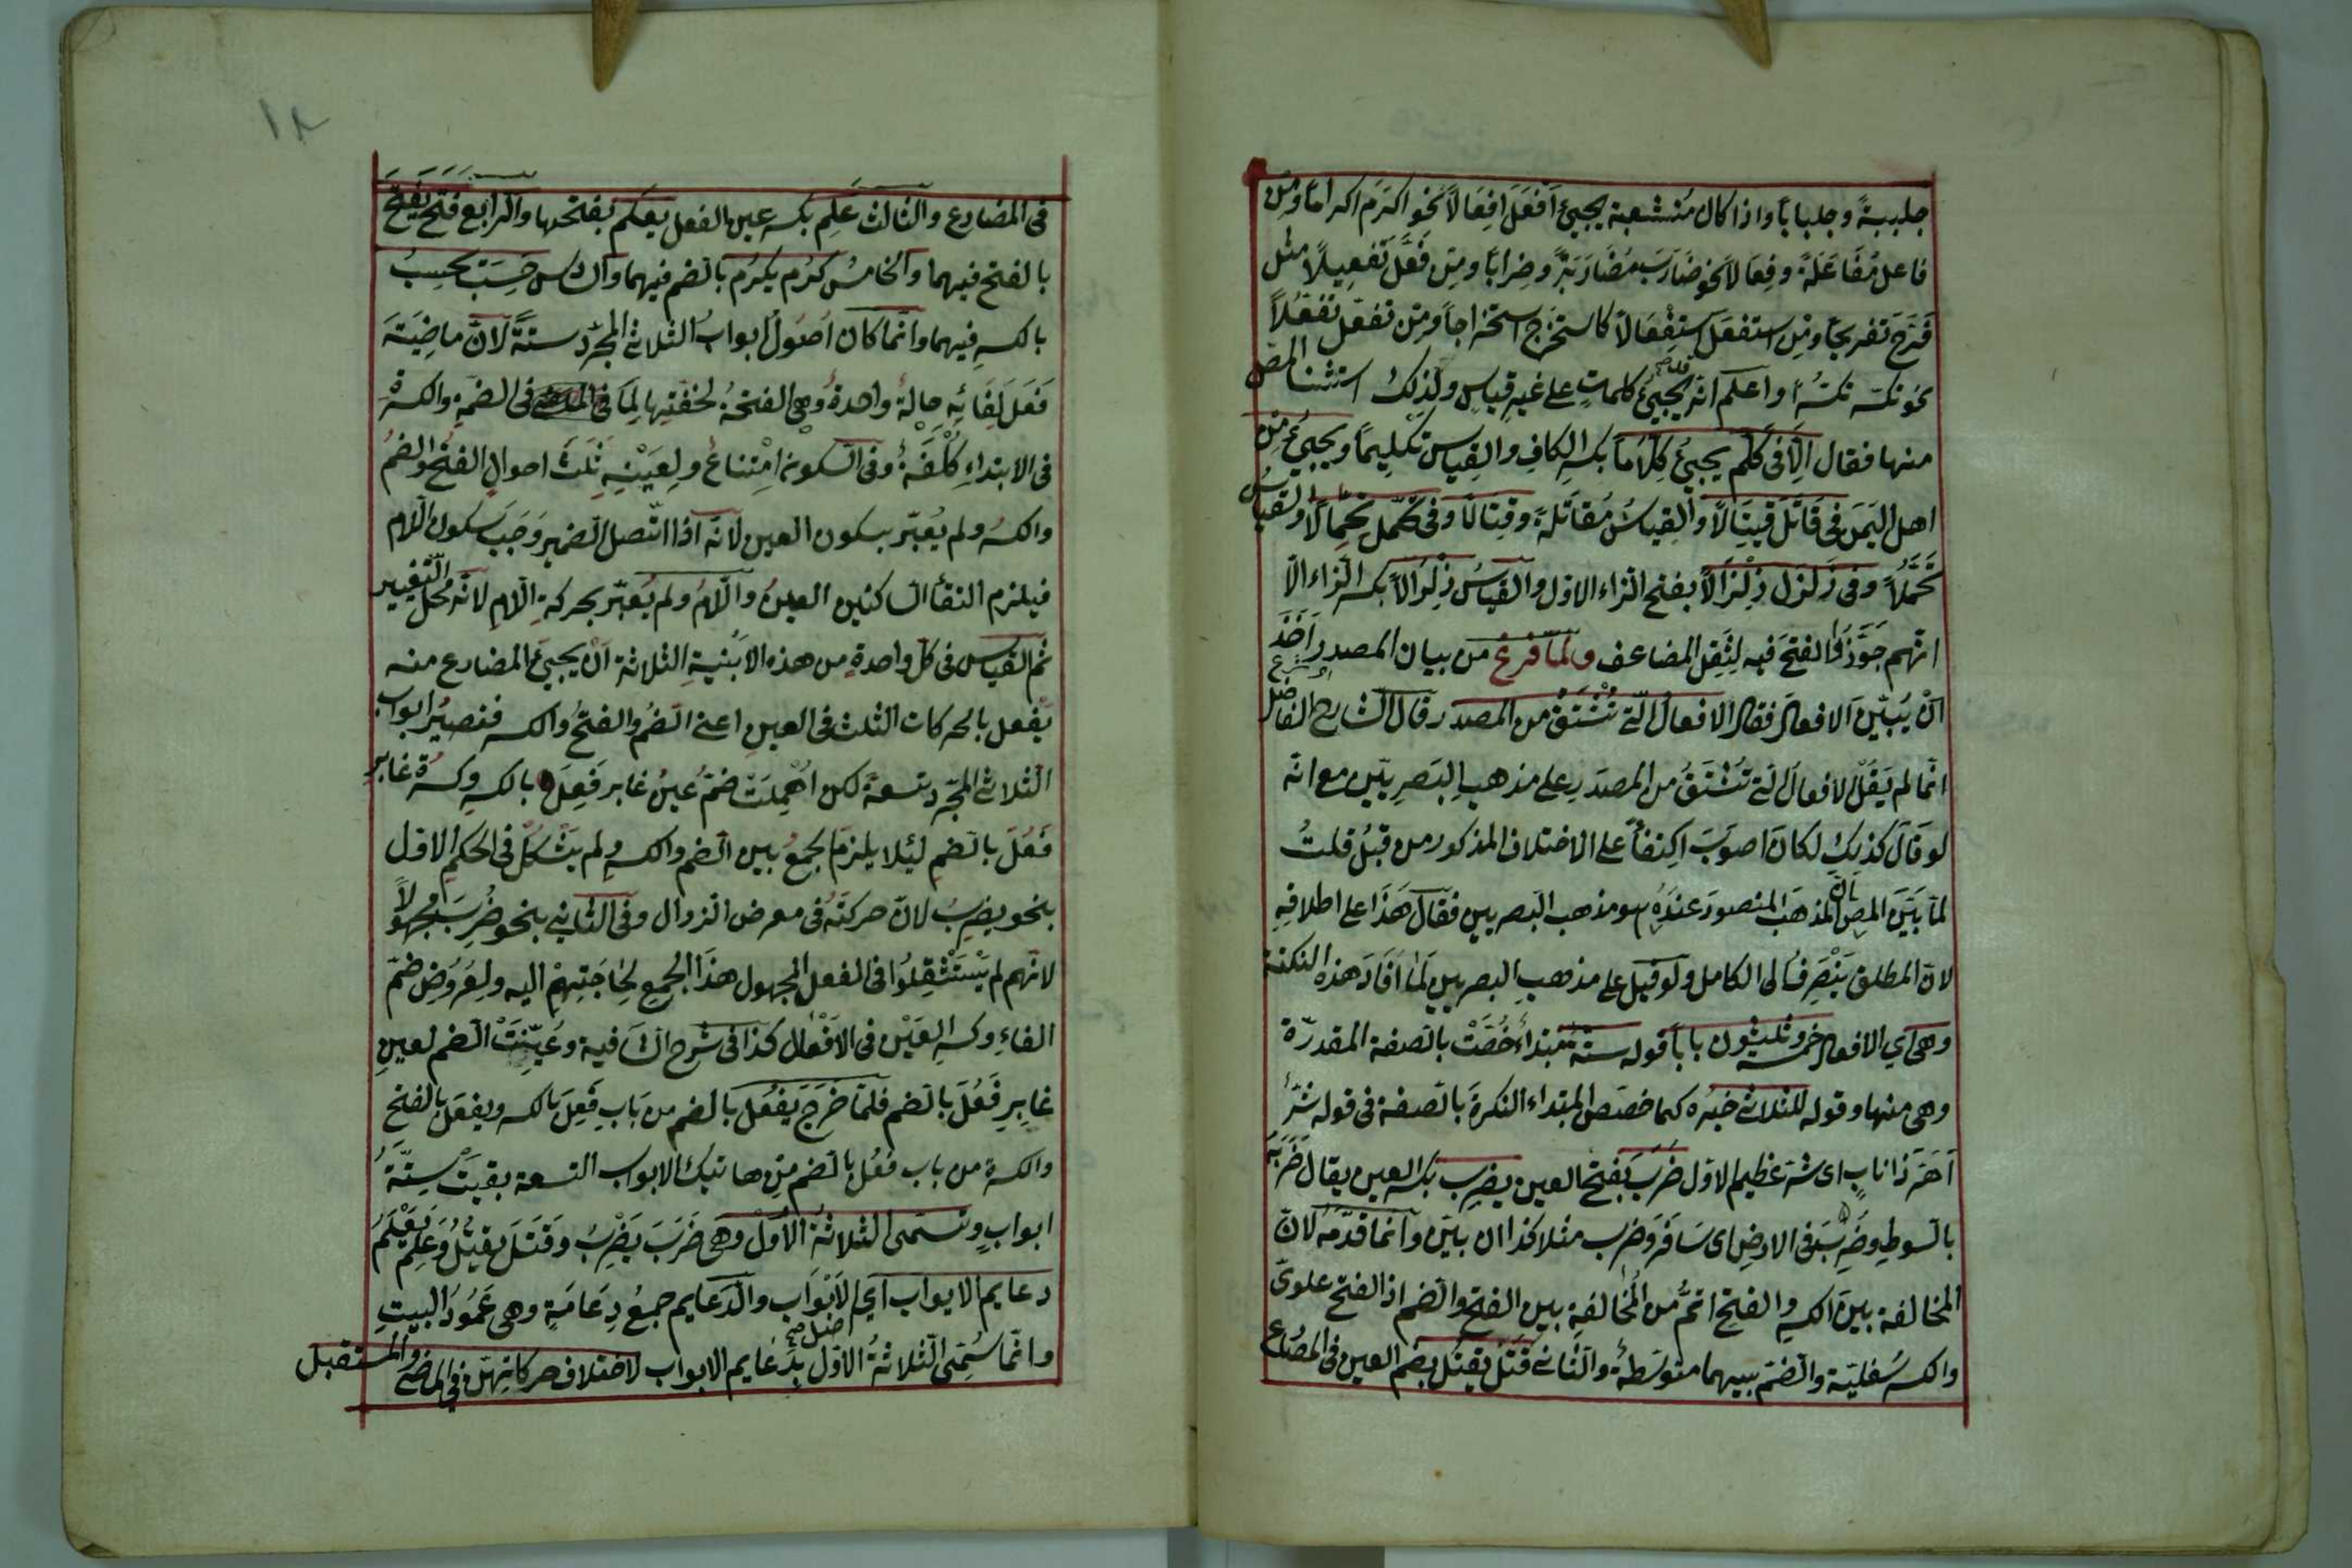 جلببةً وجلباباً واذا كان مُنشعبة يجيئ اَفْعَلَ اِفِعَالاً نحو اكرَمَ اكراماً ومِن
فاعل مُفَاعَلَةً وفِعَالاً نحو ضَارَبَ مُضَارَبَةً وضِرابًا ومِن فَعَّلَ تَفْعِيلاً مثل
فَرَّحَ تفريحاً ومِن استفعَلَ اِستِفْعَالاً كاستخرَج استخراجاً ومِن تفعّل تَفَعُّلاً
نحو تكسّر تكسُّراً واعلم انّه قد يجيئ كلمات على غير قياسٍ ولذلك استثنا المص
منها فقال اِلّا فى كَلَّمَ يجيئ كِلّاَماً بكسر الكاف والقياس تَكْلِيماً ويجيئ من
اهل اليَمَن فى قَاتَلَ قِيتَالاً والقِياسُ مُقاتَلة وقِتَالاً وفى تَحَمّل تِحِمّالاً والقياسُ
تَحَمُّلاً وفى زَلْزَل زَلْزَالاً بفتح الزاء الاول والقياسُ زِلْزَالاً بكسر الزاء الّا
انّهم جَوَّزُوا الفتحَ فيه لِثِقَلِ المضاعف ولمّا فرغ من بيان المصدر اَخَذَ
شرع
انْ يُبيّن الافعال فقال الافعالُ الّتى تُشْتَقّ من المصدر قال الشارح الفاضل
انّما لم يَقُلْ الافعال الّتى تُشْتَقُّ من المصدَرِ على مذهبِ البَصرِيّين مع انّه
لو قَالَ كذلِك لكانَ اصوَبَ اِكتفاءً على الاختلاف المذكور من قبلُ قلتُ
لمّا بَيَّنَ المص بانّ المذهَبَ المنصور عندَهُ هو مذهب البصريين فقالَ هَذَا على اطلاقِهِ
لانّ المطلق يَنْصَرِفُ الى الكامل ولو قيل على مذهبِ البصريين لَمَا اَفَادَ هذه النكتة
وهى اى الافعال خمسة وثلثون باباً قوله ستّة مبتداءٌ خُصَّتْ بالصفة المقدرّة
وهى منها وقوله للثلاثى خبرُه كما خصّصَ المبتداء النكرةَ بالصفة فى قوله شرٌّ
اَهَرَّ ذا نابٍ اى شرّ عظيم الاوّل ضَرَبَ بفتح العين يضرِب بكسر العين يقال ضَرَبَهُ
بالسوطِ وضَرَبَ فى الارضِ اى سَافَرَ وضرب مثلا كذا اى بيّن وانما قدّمَهُ لانّ
المخالفة بينَ الكسرِ والفتحِ اتمُّ من المُخالفةِ بين الفتح والضم اذ الفتح علوىّ
والكسر سُفليّة والضمّ بينهما متوسّطة والثانى قَتَلَ يقتُل بضم العين فى المضارع
١٨
فى المضارع والثالث عَلِم بكسر عين الفعل يعلَم بفتحها والرابع فَتَحَ يَفْتَحُ
بالفتح فيهما والخامسُ كرُم يكرُم بالضم فيهما والسادس حَسِبَ يحسِبُ
بالكسرِ فيهما وانّما كان اُصُولُ ابوابُ الثلاثى المجرّد ستّةً لانّ ماضِيَتَه
فَعَلَ لِفَائِهِ حالةٌ واحدةٌ وهى الفتحةُ لخفّتِها لِمَا فى الضمّةِ والكسرةِ
فى الابتداءِ كُلْفَةٌ وفى السكونِ امْتِناعٌ ولِعَيْنِهِ ثَلَثُ احوالٍ الفتحُ والضمُ
والكسرُ ولم يُعتبر بسكون العين لانّه اذا اتّصل الضمير وَجَبَ سكون اللّام
فيلزم التقاُ الساكنين العينُ واللّامُ ولم يُعتبر بحركةِ اللّامِ لانّه محلّ التغيير
ثم القياس فى كلّ واحدةٍ من هذه الابنيةِ الثلاثة اَنْ يجيئَ المضارع منه
يَفْعل بالحركات الثلث فى العينِ اعنى الضّمُ والفتحُ والكسر فتصيرُ ابوابُ
الثلاثى المجرّد تسعةً لكن اُهْمِلَتْ ضمّ عينُ غابر فَعِلَ بالكسرِ وكسرةُ غابرِ
فَعُلَ بالضمِ لئلا يلزمَ الجمعُ بين الضم والكسرِ ولم يَشْكُلْ فى الحكم الاوّل
بنحو يضرِبُ لانّ حركتَهُ فى معرض الزوال وفى الثانى بنحو ضُرِبَ مجهولاً
لانّهم لم يَسْتَثْقِلُوا فى الفعل المجهول هذَا الجمع لِحَاجَتِهِمْ اليه ولِعُرُوضِ ضمّ
الفاءِ وكسرِ العَيْن فى الافْعال كذا فى شرح الشافية وعُيّنَتْ الضم لعينِ
غابِرِ فَعُلَ بالضم فلمّا خَرَجَ يَفعُل بالضم من بَابِ فَعِلَ بالكسر ويفعَل بالفتح
والكسرة من باب فَعُل بالضم مِن هاتيك الابواب التسعة بقيَتْ سِتّةُ
ابوابٍ وتسمّى الثلاثةُ الاُوَلْ وهى ضَرَبَ يَضْرِبُ وقَتَلَ يقتُلُ وعَلِمَ يَعْلَمُ
دعايم الابواب اى الاَبْوَاب والدّعايم جمعُ دِعَامَةٍ وهى عَمُودُ البيتِ
وانّما سُمّى الثلاثةُ الاوّل بِدَعَايم الابواب لاختلاف حركاتِهنّ فى الماضى والمستقبل